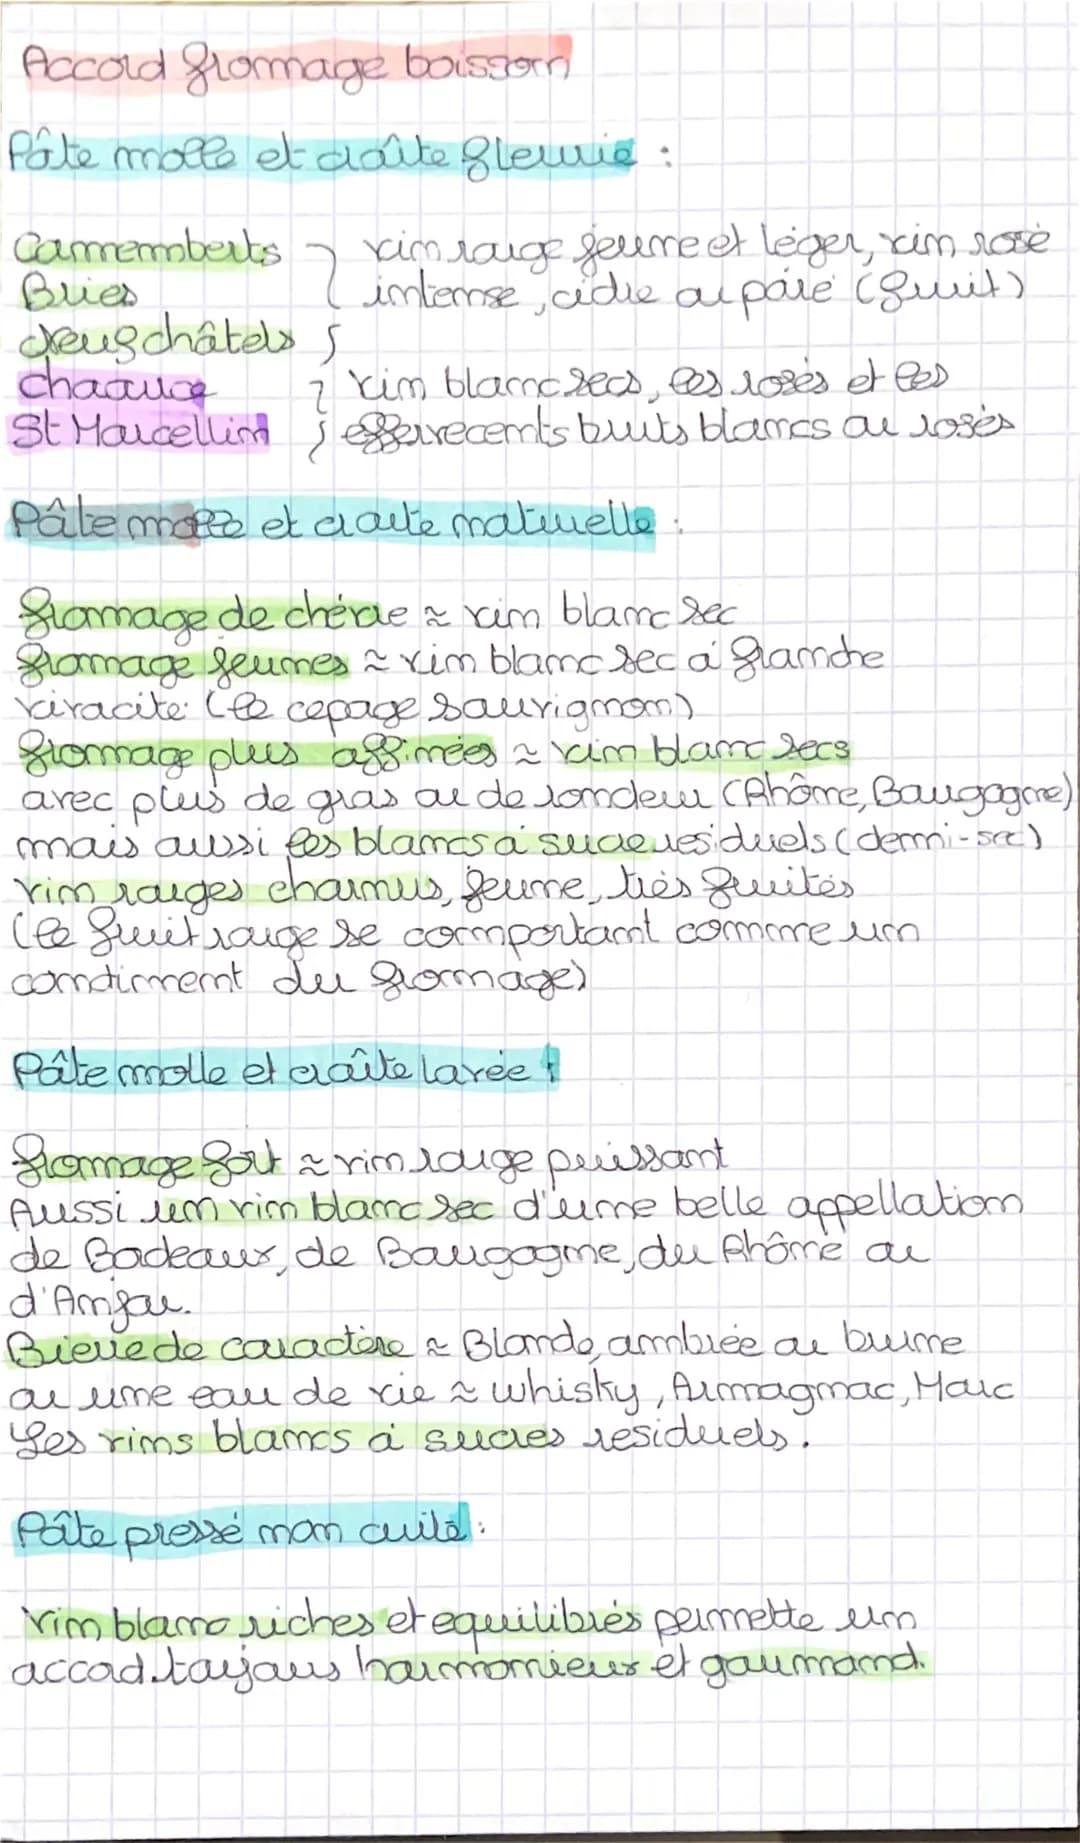 Accord fromage boisson
Pâte molle et croûte fleurie :
Camemberts } vin rouge jeune et léger, vin rosé
Bries intense, cidre ou poiré (fruit)
Neufchâtels
Chaource } vin blanc secs, les rosés et les
St Marcellin effervecents bruts blancs ou rosés
Pâte molle et croute naturelle :
fromage de chèvre ≈ vin blanc sec
fromage jeunes ≈ vin blanc sec à franche
vivacité (le cepage sauvignon)
fromage plus affinées ≈ vin blanc secs
avec plus de gras ou de rondeur (Rhône, Bourgogne)
mais aussi les blancs à sucre residuels (demi-sec)
vin rouges charnus, jeune, très fruités
(le fruit rouge se comportant comme un
condiment du fromage)
Pâte molle et croûte lavée :
fromage fort ≈ vin rouge puissant
Aussi un vin blanc sec d'une belle appellation
de Bordeaux, de Bourgogne, du Rhône ou
d'Anjou.
Biere de caractère ≈ Blonde, ambrée ou brune
ou une eau de vie ≈ whisky, Armagnac, Marc
Les vins blancs à sucres residuels.
Pâte pressé non cuite :
Vin blanc riches et equilibrés permette un
accord toujours harmonieux et gourmand.